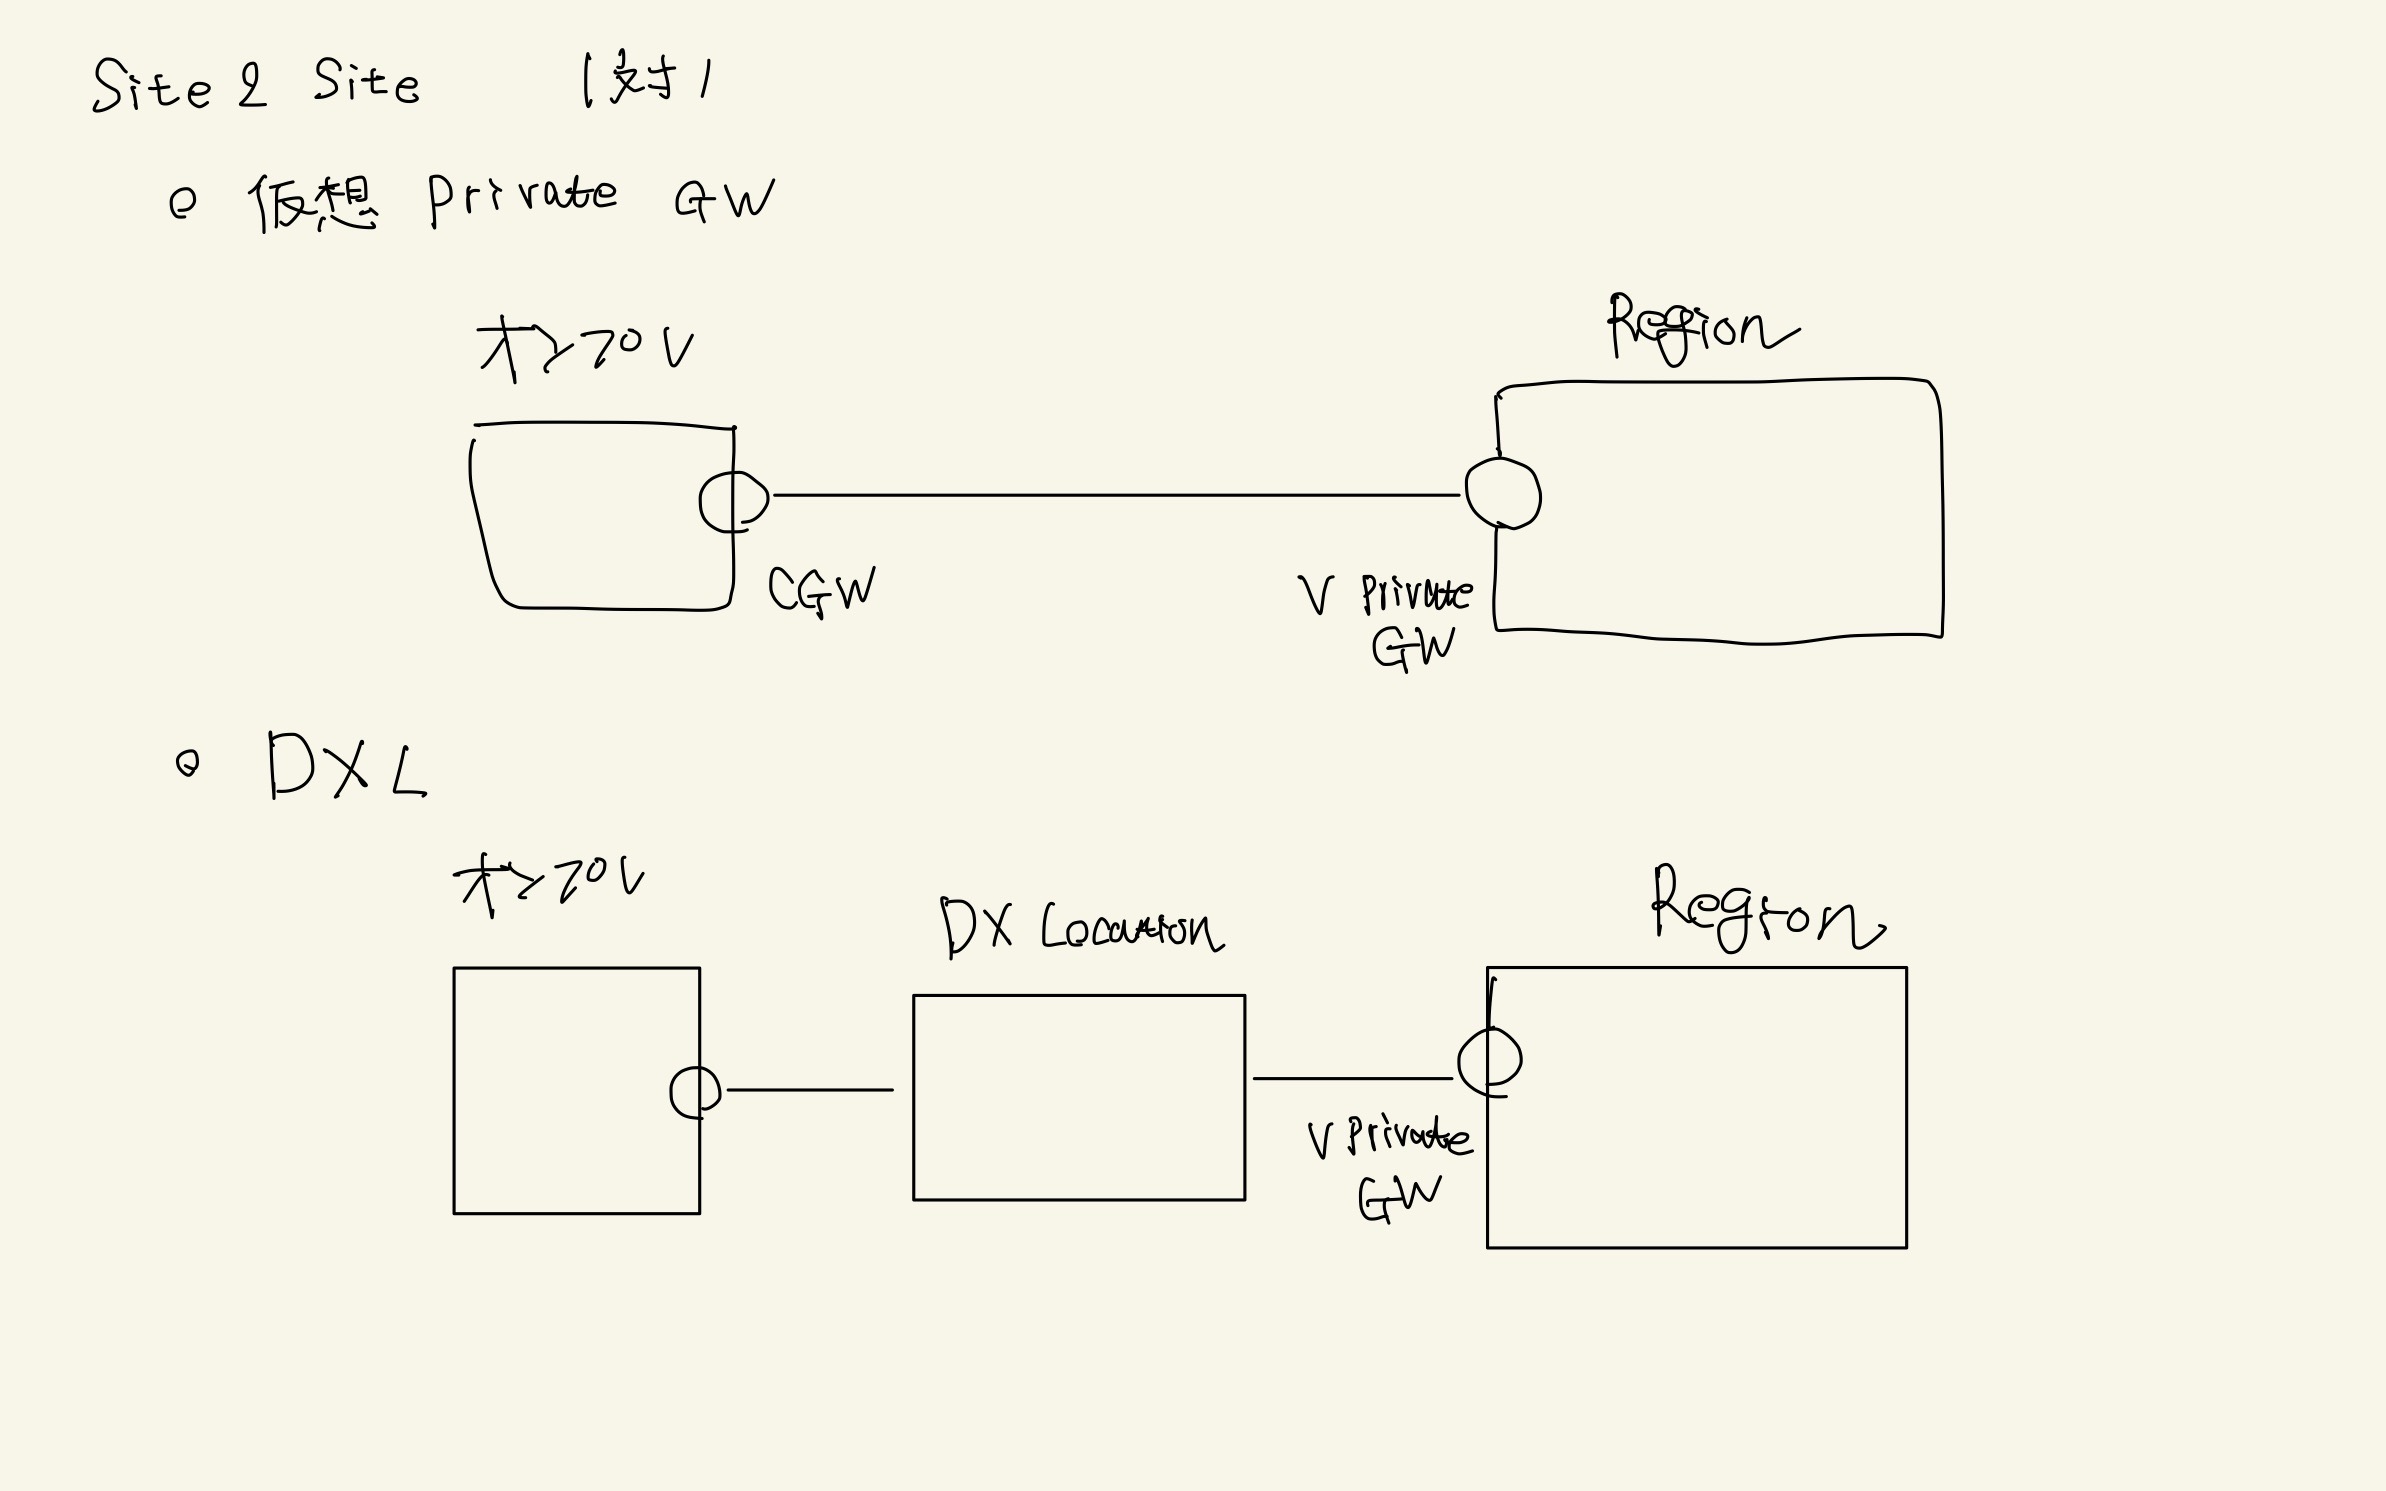 Site 2 Site 1対1
仮想 Private GW
オンプレ
Region
CGW
V Private
GW
DXL
オンプレ
DX Location
Region
V Private
GW